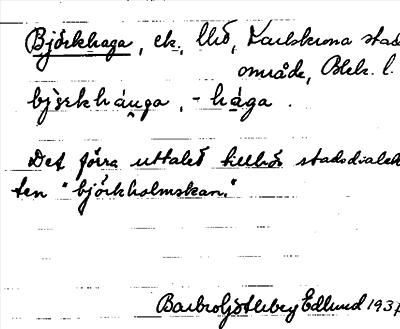 Björkhaga, ek, Karlskrona stads
område, Blek. l.
bjö̀rkhánga, - hága.
Det förra uttalet tillhör stadsdialek
ten "björkholmskan."
Barbro Götleberg Edlund 1937